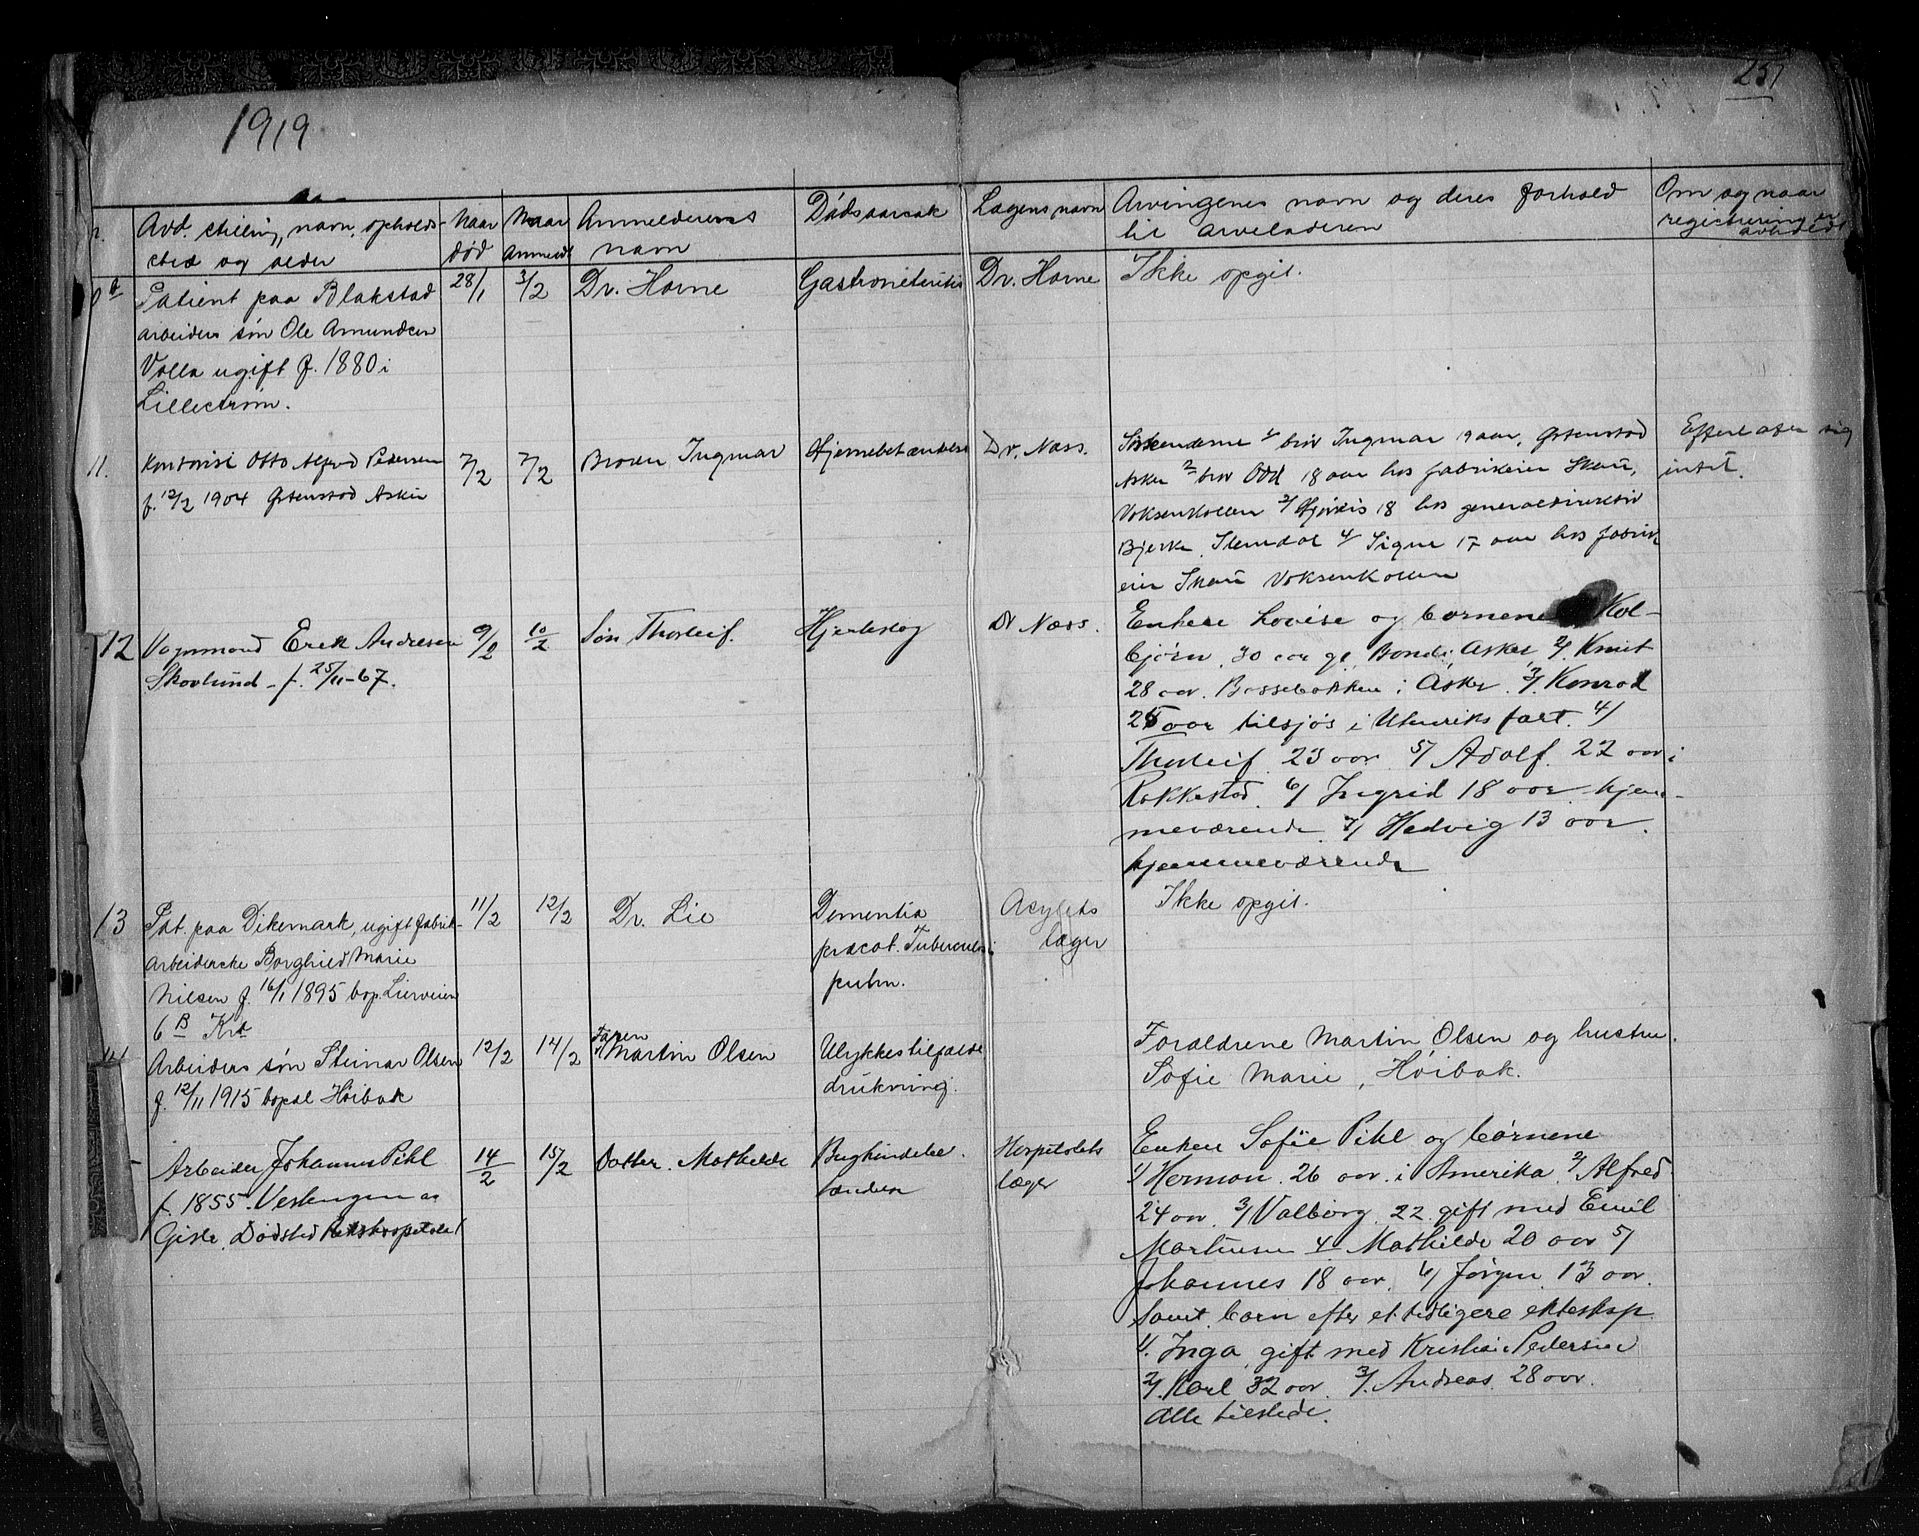 1919
251
Avd. stilling, navn, opholds-
sted og alder
Naar
død
Naar
Anmeldt
Anmelderens
navn
Dødsaarsak
Lægens navn
Arvingenes navn og deres forhold
til arveladeren
Om og naar
registrering er
avholdt
Patient paa Blakstad
arbeiders søn Ole Amundsen
Valla ugift f. 1880 i
Lillestrøm.
28/1
3/2
Dr. Horne
Gastroneteritis
Dr. Horne
Ikke opgit.
11.
Kontorist Otto Alfred Pedersen
f. 12/2 1904 Østenstad Asker
7/2
7/2
Broren Ingmar
Hjernebetændelse
Dr. Næss.
Søskenderne 1/ bror Ingmar 19 aar, Østenstad
Asker 2/ bror Odd 18 aar hos fabrikeier Skau,
Voksenkollen 3/ Hjørdis 18 hos generaldirektør
Bjerke, Slemdal 4/ Signe 17 aar hos fabrik
eier Skau Voksenkollen
Efterlater sig
intet.
12
Vognmand Erik Andresen
Skovlund - f. 25/11-67.
9/2
10/2
Søn Thorleif.
Hjerteslag
Dr Næss.
Enken Lovise og børnene Kol-
bjørn, 30 aar gl. Bondi Asker 2/. Knut
28 aar. Bassebakken i Asker. 3/. Konrad
25 aar tilsjøs i Utenriksfart. 4/
Thorleif 23 aar 5/ Adolf. 22 aar i
Rakkestad. 6/ Ingrid 18 aar hjem-
meværende 7/ Hedvig 13 aar.
hjemmeværende
13
Pat. paa Dikemark, ugift fabrik-
arbeiderske Borghild Marie
Nilsen f. 16/1 1895 bop. Lierveien
6 B Kra
11/2
12/2
Dr. Lie
Dementia
præcox. Tuberculosis
pulm.
Asylets
læger
Ikke opgit.
14
Arbeiders søn Steinar Olsen
f. 12/11 1915 bopæl Høibak
12/2
14/2
Faren
Martin Olsen
Ulykkestilfælde
drukning.
Forældrene Martin Olsen og hustru
Sofie Marie, Høibak.
Arbeider Johannes Pihl
f. 1855. Vestengen
Gisle. Dødsted Rikshospitalet
14/2
15/2
Datter. Mathilde
Bughindebe-
tændelse
Hospitalets
læger
Enken Sofie Pihl og børnene
1/ Herman. 26 aar. i Amerika. 2/ Alfred
24 aar. 3/ Valborg. 22. gift med Emil
Martinsen 4/ Mathilde 20 aar 5/
Johannes 18 aar. 6/ Jørgen. 13 aar.
samt. barn efter et tidligere ekteskap
1/. Inga, gift med Kristian Pedersen
2/. Karl 32 aar. 3/. Andreas. 28 aar.
Alle tilstede.